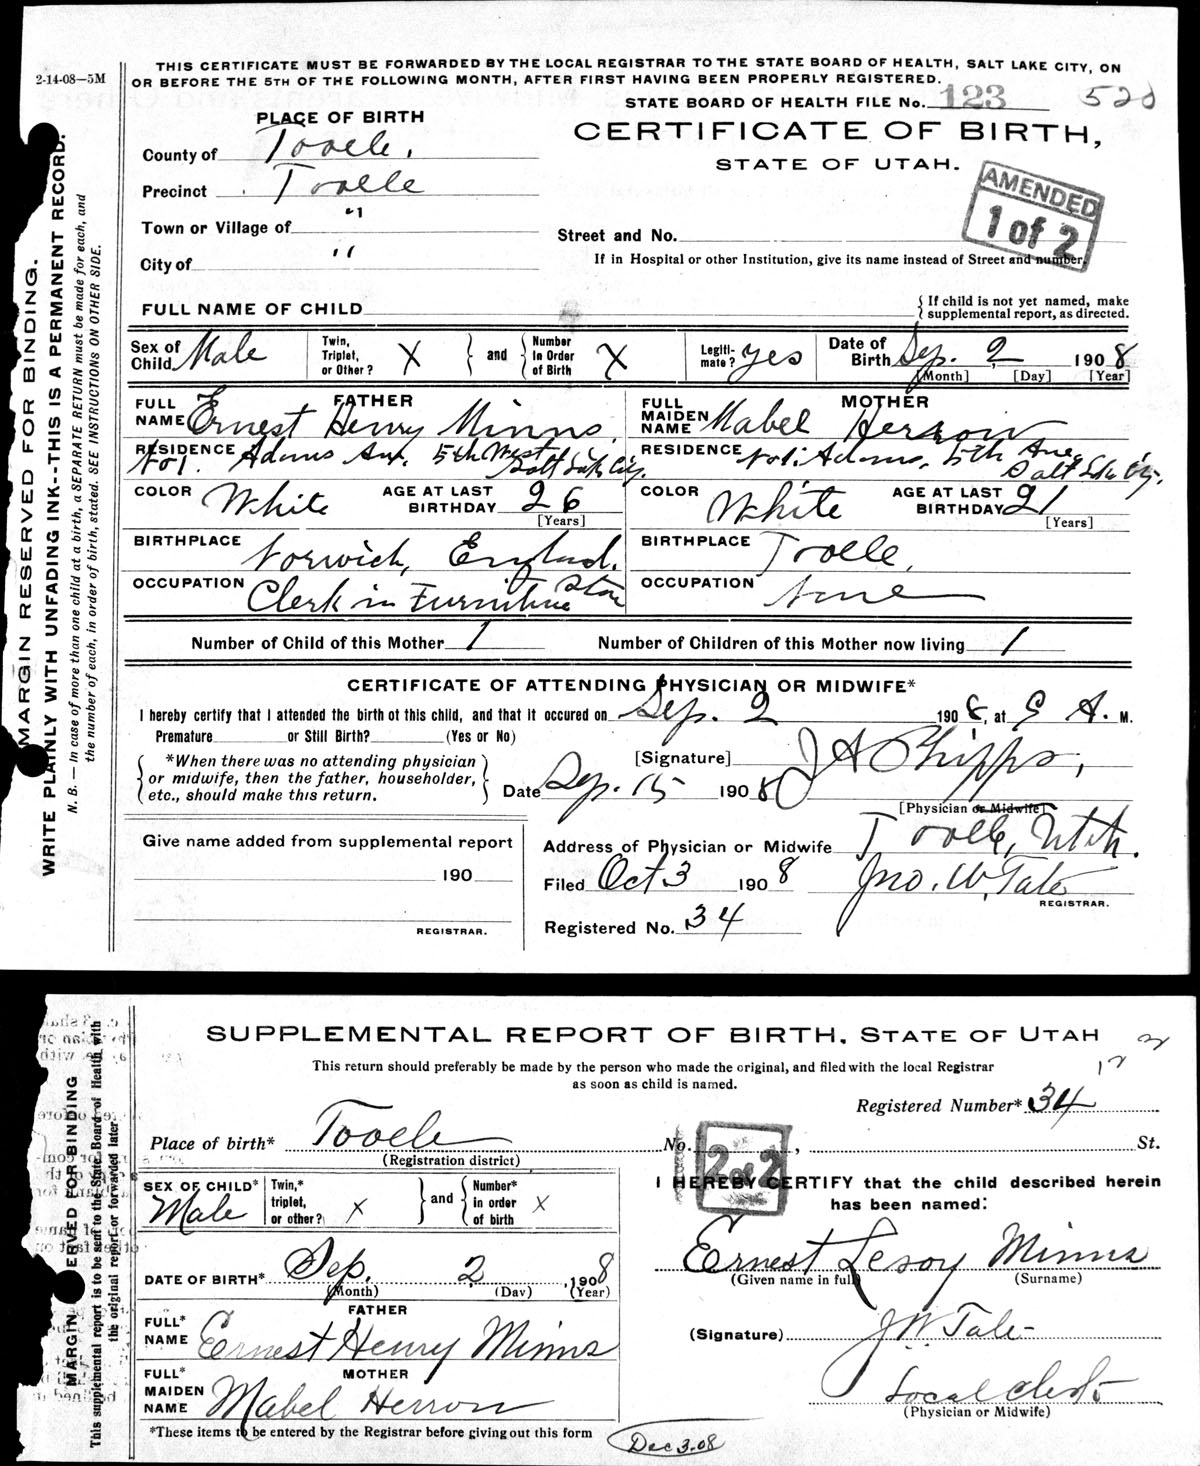 2-14-08—5M
THIS CERTIFICATE MUST BE FORWARDED BY THE LOCAL REGISTRAR TO THE STATE BOARD OF HEALTH, SALT LAKE CITY, ON
OR BEFORE THE 5TH OF THE FOLLOWING MONTH, AFTER FIRST HAVING BEEN PROPERLY REGISTERED.
STATE BOARD OF HEALTH FILE No. 123
PLACE OF BIRTH
CERTIFICATE OF BIRTH,
STATE OF UTAH.
AMENDED
1 of 2
County of Tooele.
Precinct Tooele
Town or Village of "
City of "
Street and No.
If in Hospital or other Institution, give its name instead of Street and number.
FULL NAME OF CHILD
{ If child is not yet named, make
supplemental report, as directed.
Sex of Child Male
Twin, Triplet, or Other? X } and { Number in Order of Birth X
Legiti-mate? Yes
Date of Birth Sep. 2, 1908
[Month] [Day] [Year]
FATHER
FULL NAME Ernest Henry Minns.
RESIDENCE No 1. Adams Ave. 5th West Salt Lake City.
COLOR White AGE AT LAST BIRTHDAY 26
[Years]
BIRTHPLACE Norwich, England.
OCCUPATION Clerk in Furniture Store
MOTHER
FULL MAIDEN NAME Mabel Herron
RESIDENCE No 1. Adams, 5th Ave, Salt Lake City.
COLOR White AGE AT LAST BIRTHDAY 21
[Years]
BIRTHPLACE Tooele,
OCCUPATION None
Number of Child of this Mother 1 Number of Children of this Mother now living 1
CERTIFICATE OF ATTENDING PHYSICIAN OR MIDWIFE*
I hereby certify that I attended the birth of this child, and that it occured on Sep. 2 1908, at 9 A. M.
Premature or Still Birth? (Yes or No)
{ *When there was no attending physician
or midwife, then the father, householder,
etc., should make this return. }
[Signature] J A Phipps,
Date Sep. 15 1908
[Physician or Midwife]
Give name added from supplemental report
190
REGISTRAR.
Address of Physician or Midwife Tooele, Utah.
Filed Oct 3 1908 Jno. W. Tate
REGISTRAR.
Registered No. 34
MARGIN RESERVED FOR BINDING.
WRITE PLAINLY WITH UNFADING INK--THIS IS A PERMANENT RECORD.
N. B. — In case of more than one child at a birth, a SEPARATE RETURN must be made for each, and
the number of each, in order of birth, stated. SEE INSTRUCTIONS ON OTHER SIDE.
SUPPLEMENTAL REPORT OF BIRTH, STATE OF UTAH
This return should preferably be made by the person who made the original, and filed with the local Registrar
as soon as child is named.
Registered Number* 34
Place of birth* Tooele No. , St.
(Registration district)
2 of 2
SEX OF CHILD* Male
Twin,* triplet, or other? X } and { Number* in order of birth X
DATE OF BIRTH* Sep. 2, 1908
(Month) (Day) (Year)
FATHER
FULL* NAME Ernest Henry Minns
MOTHER
FULL* MAIDEN NAME Mabel Herron
*These items to be entered by the Registrar before giving out this form
I HEREBY CERTIFY that the child described herein
has been named:
Ernest Leroy Minns
(Given name in full) (Surname)
(Signature) J W Tate
Local
(Physician or Midwife)
Dec 3.08
MARGIN RESERVED FOR BINDING
This supplemental report is to be sent to the State Board of Health with
the original report or forwarded later